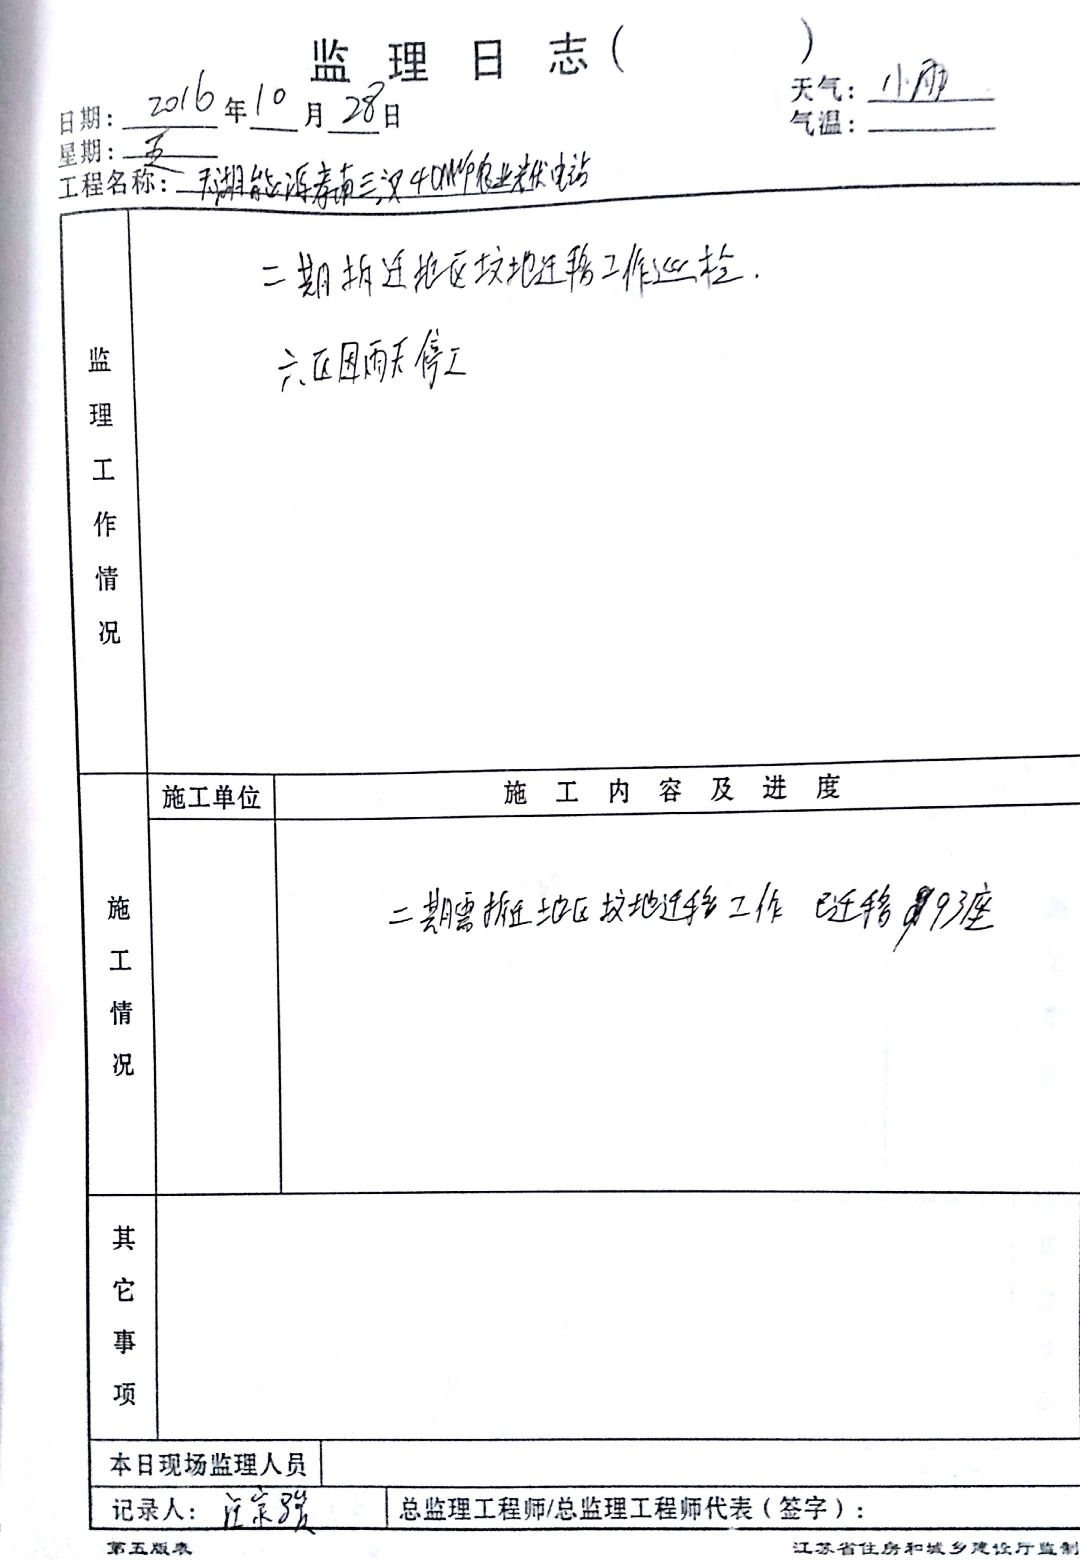 监理日志(　　　)
日期：2016年10月28日
天气：小雨
星期：五
气温：
工程名称：天湖能源孝南三汊40MWP农业光伏电站
监理工作情况
二期拆迁地区坟地迁移工作巡检.
六区因雨天停工
施工情况
施工单位
施工内容及进度
二期需拆迁地区坟地迁移工作 已迁移93座
其它事项
本日现场监理人员
记录人：汪宗骏
总监理工程师/总监理工程师代表(签字)：
第五版表
江苏省住房和城乡建设厅监制